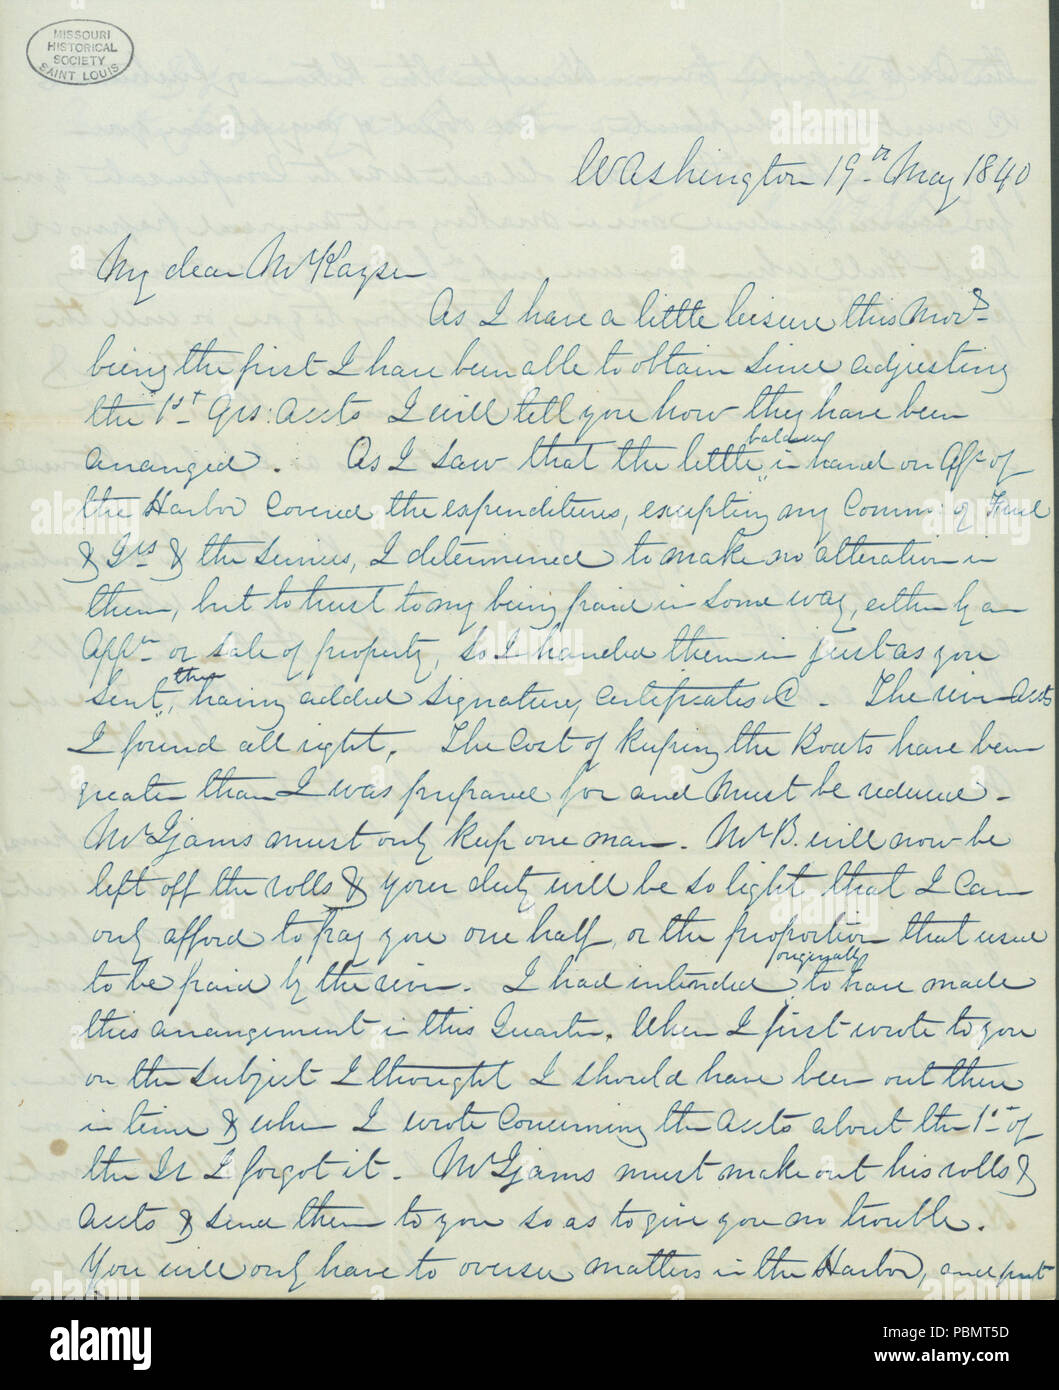 MISSOURI
HISTORICAL
SOCIETY
SAINT LOUIS
Washington 19th May 1840
My dear Mr Kayser
As I have a little leisure this Morng
being the first I have been able to obtain since adjusting
the 1st Qrs: accts I will tell you how they have been
arranged. As I saw that the little balance in hand on Aps of
the Harbor covered the expenditures, excepting my Comms: of
& & the Services, I determined to make no alteration in
them, but to trust to my being paid in some way, either by an
Appn or sale of property, so I handed them in just as you
sent them, having added signatures, certificates &c. The river accts
I found all right. The cost of keeping the Boats have been
greater than I was prepared for and must be reduced.
Mr Ijams must only keep one man. Mr B. will now be
left off the rolls & your duty will be so light that I can
only afford to pay you one half, or the proportion that used
to be paid by the river. I had intended originally to have made
this arrangement in this Quarter. When I first wrote to you
on the subject I thought I should have been out there
in time & when I wrote concerning the accts about the 1st of
the I forgot it. Mr Ijams must make out his rolls &
accts & send them to you so as to give you no trouble.
You will only have to oversee matters in the Harbor, and put
alamy
alamy stock photo
Image ID: PBMT5D
www.alamy.com